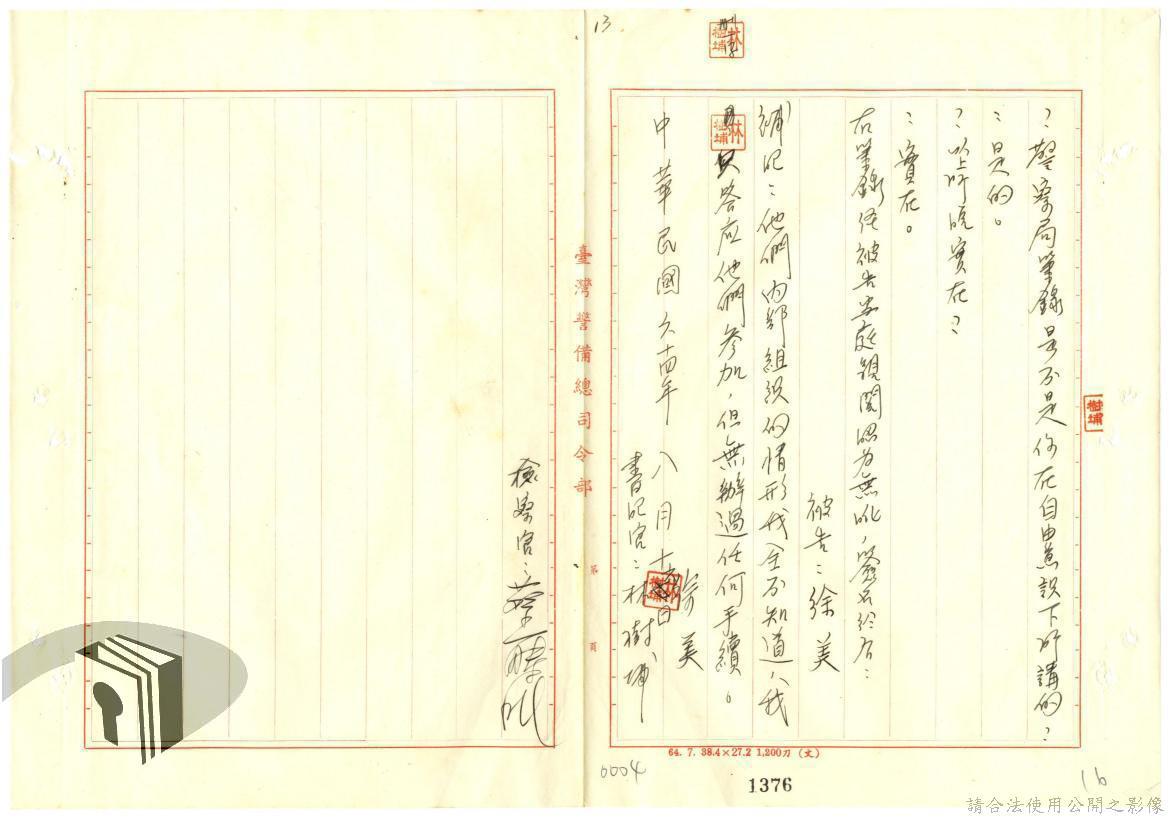 13
林樹埔
?警察局筆錄是不是你在自由意識下所講的?
:是的。
?以上所說實在?
:實在。
右筆錄經被告當庭親閱認為無訛,簽名於后:
被告:徐美
補記:他們內部組織的情形我全不知道,我
林樹埔
只答应他們參加,但無辦過任何手續。
徐美
中華民國六十四年八月十
日
林樹埔
書記官:林樹埔
樹埔
臺灣警備總司令部
第 頁
檢察官:
64. 7. 38.4×27.2 1,200刀 (文)
0004
1376
16
請合法使用公開之影像